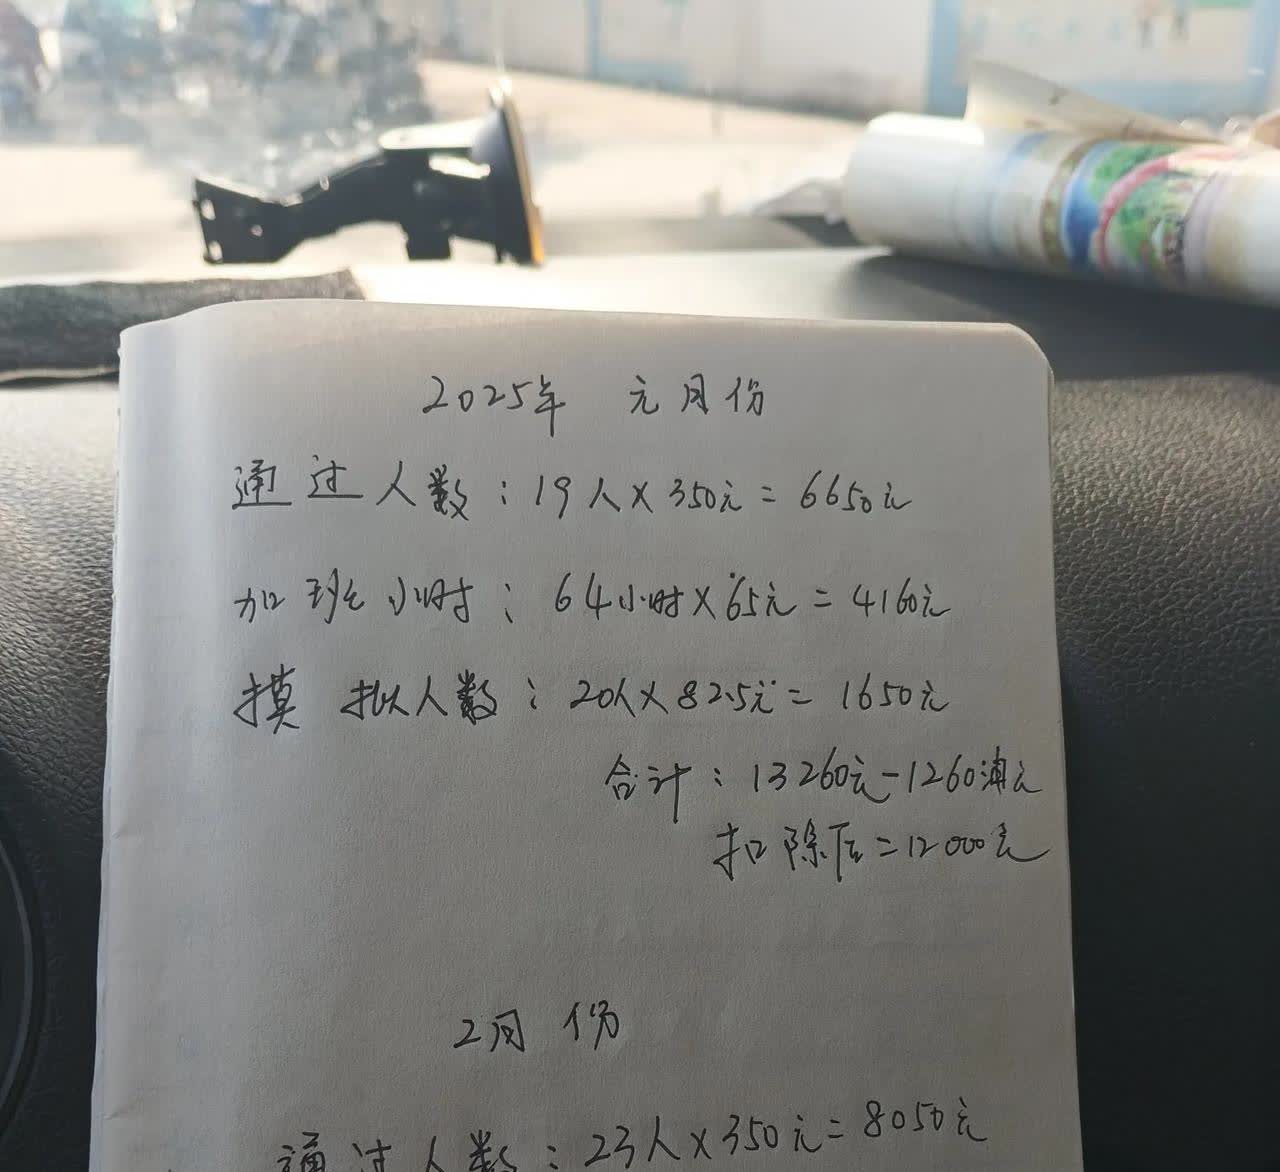 2025年 元月份
通过人数：19人×350元=6650元
加班小时：64小时×65元=4160元
摸拟人数：20人×82.5元=1650元
合计：13260元-1260油元
扣除后=12000元
2月份
通过人数：23人×350元=8050元